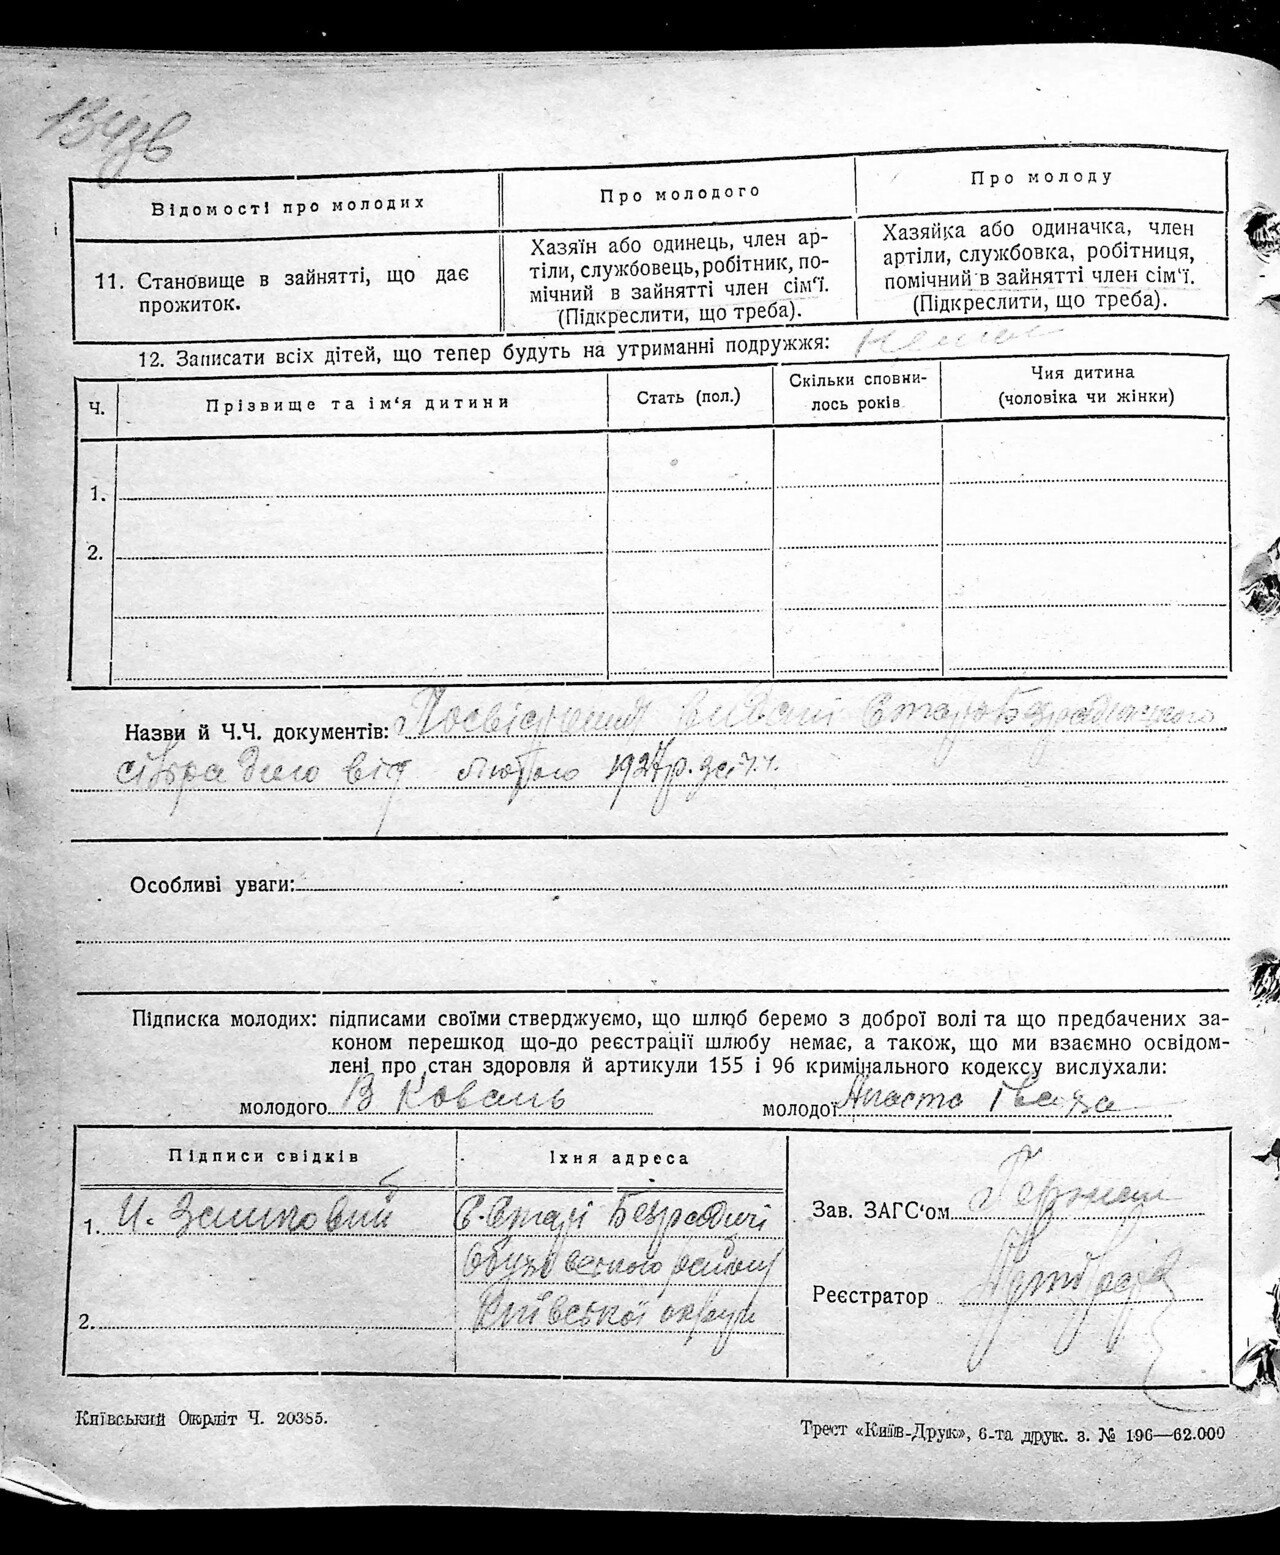 134зв
Відомості про молодих
Про молодого
Про молоду
11. Становище в зайнятті, що дає
прожиток.
Хазяїн або одинець, член ар-
тіли, службовець, робітник, по-
мічний в зайнятті член сім'ї.
(Підкреслити, що треба).
Хазяйка або одиначка, член
артіли, службовка, робітниця,
помічний в зайнятті член сім'ї.
(Підкреслити, що треба).
12. Записати всіх дітей, що тепер будуть на утриманні подружжя:
Ч.
Прізвище та ім'я дитини
Стать (пол.)
Скільки сповни-
лось років
Чия дитина
(чоловіка чи жінки)
1.
2.
Назви й Ч.Ч. документів: Посвідчення видані
від лютого 1927 р. за ч.ч.
Особливі уваги:
Підписка молодих: підписами своїми стверджуємо, що шлюб беремо з доброї волі та що предбачених за-
коном перешкод що-до реєстрації шлюбу немає, а також, що ми взаємно освідом-
лені про стан здоровля й артикули 155 і 96 кримінального кодексу вислухали:
молодого В Коваль
молодої
Підписи свідків
Їхня адреса
1.
С. Старі Безрадичі
Обухівського району
Київської округи
2.
Зав. ЗАГС'ом
Реєстратор
Київський Окрліт Ч. 20385.
Трест «Київ-Друк», 6-та друк. з. № 196—62.000